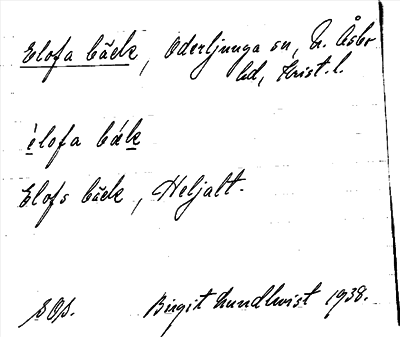 Elofa bäck, Oderljunga sn, N. Åsbo
hd, Krist. l.
èlofa bák
Elofs bäck, Heljalt.
SOS. Birgit Lundkvist 1938.